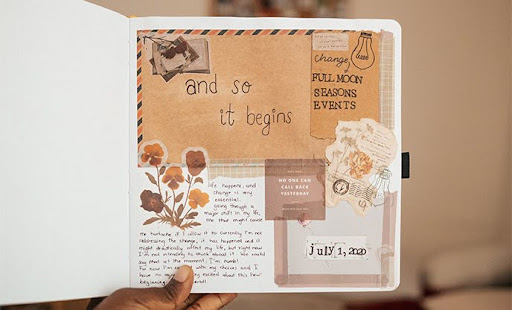 and so
it begins
change,
FULL MOON
SEASONS
EVENTS
NO ONE CAN
CALL BACK
YESTERDAY
Life happens, and
change is very
essential.
Going through a
major shift in my life,
me that might cause
me heartache if I allow it to currently I'm not
addressing the change, it has happened and it
might drastically affect my life, but right now
I'm not intending to think about it. We could
say that at the moment, I'm numb!
For now I'm with my choices and I
have no excited about this new
beginning world!
july 1, 2020